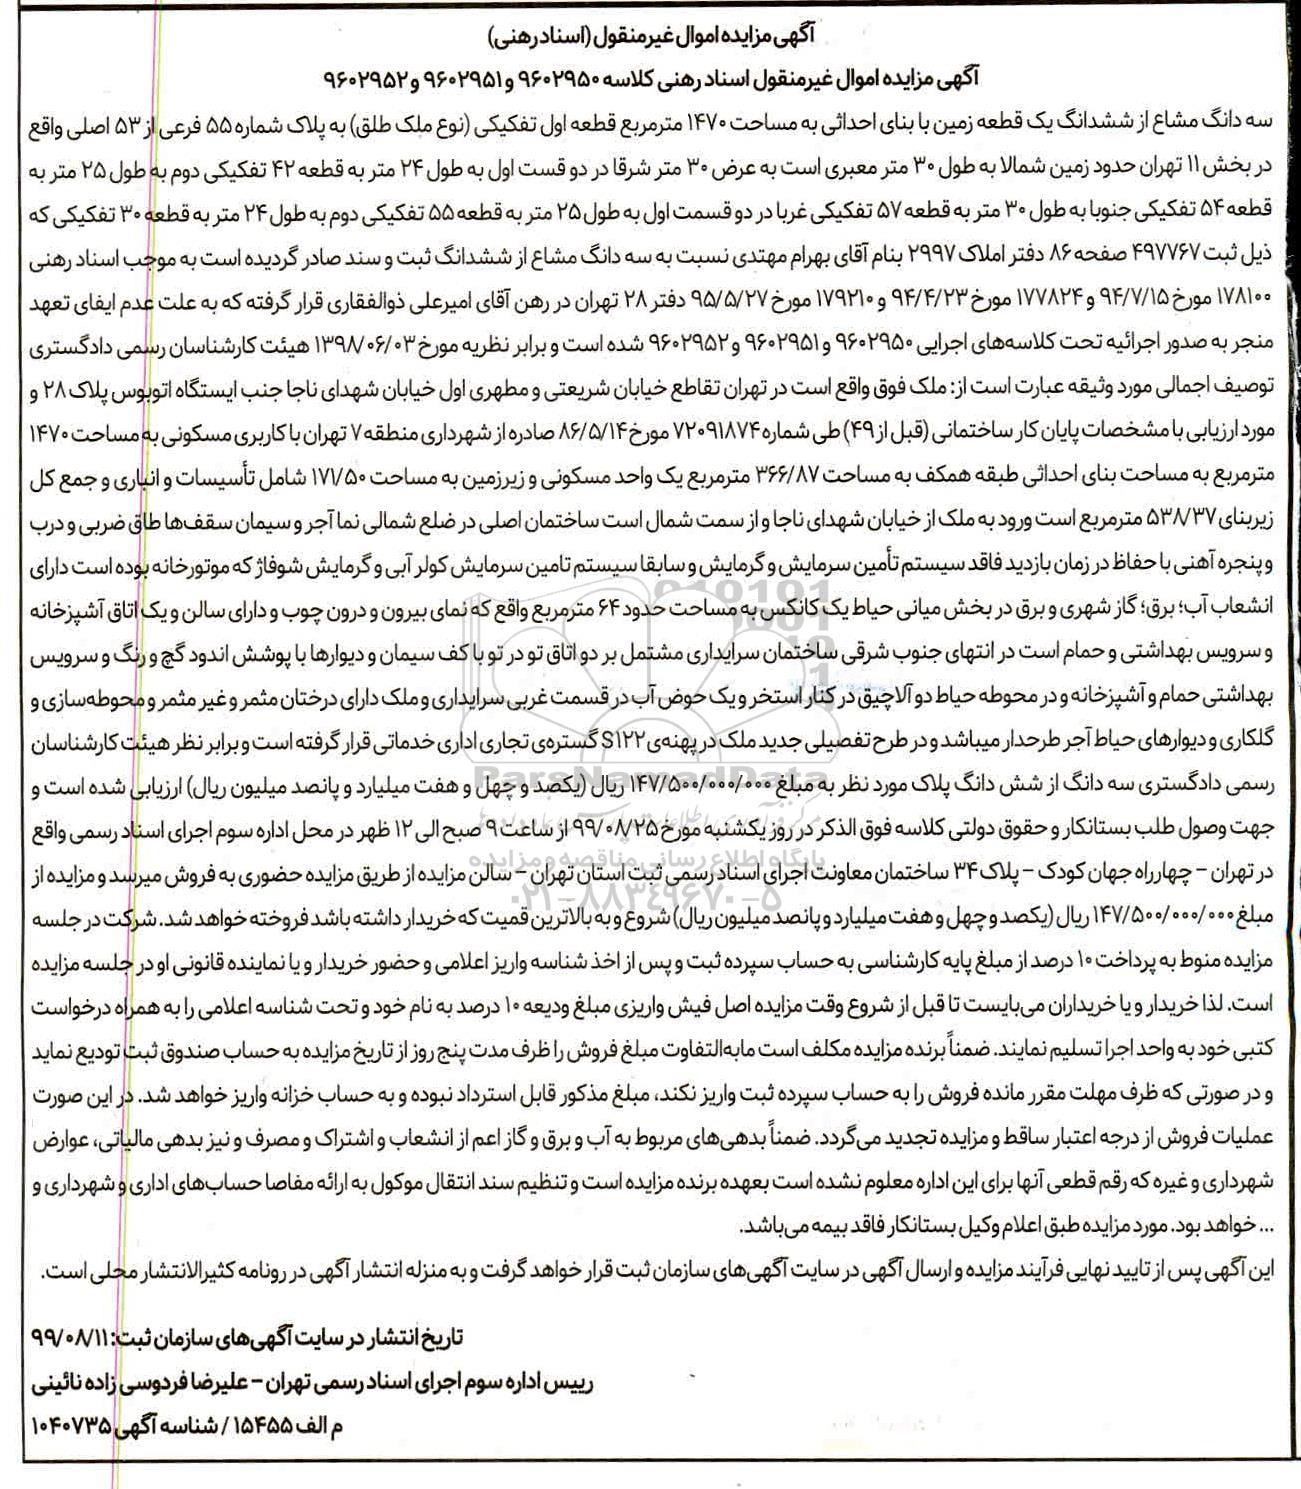 آگهی مزایده اموال غیرمنقول (اسناد رهنی)
آگهی مزایده اموال غیرمنقول اسناد رهنی کلاسه ۹۶۰۲۹۵۰ و ۹۶۰۲۹۵۱ و ۹۶۰۲۹۵۲
سه دانگ مشاع از ششدانگ یک قطعه زمین با بنای احداثی به مساحت ۱۴۷۰ مترمربع قطعه اول تفکیکی (نوع ملک طلق) به پلاک شماره ۵۵ فرعی از ۵۳ اصلی واقع
در بخش ۱۱ تهران حدود زمین شمالا به طول ۳۰ متر معبری است به عرض ۳۰ متر شرقا در دو قست اول به طول ۲۴ متر به قطعه ۴۲ تفکیکی دوم به طول ۲۵ متر به
قطعه ۵۴ تفکیکی جنوبا به طول ۳۰ متر به قطعه ۵۷ تفکیکی غربا در دو قسمت اول به طول ۲۵ متر به قطعه ۵۵ تفکیکی دوم به طول ۲۴ متر به قطعه ۳۰ تفکیکی که
ذیل ثبت ۴۹۷۷۶۷ صفحه ۸۶ دفتر املاک ۲۹۹۷ بنام آقای بهرام مهتدی نسبت به سه دانگ مشاع از ششدانگ ثبت و سند صادر گردیده است به موجب اسناد رهنی
۱۷۸۱۰۰ مورخ ۹۴/۷/۱۵ و ۱۷۷۸۲۴ مورخ ۹۴/۴/۲۳ و ۱۷۹۲۱۰ مورخ ۹۵/۵/۲۷ دفتر ۲۸ تهران در رهن آقای امیرعلی ذوالفقاری قرار گرفته که به علت عدم ایفای تعهد
منجر به صدور اجرائیه تحت کلاسه‌های اجرایی ۹۶۰۲۹۵۰ و ۹۶۰۲۹۵۱ و ۹۶۰۲۹۵۲ شده است و برابر نظریه مورخ ۱۳۹۸/۰۶/۰۳ هیئت کارشناسان رسمی دادگستری
توصیف اجمالی مورد وثیقه عبارت است از: ملک فوق واقع است در تهران تقاطع خیابان شریعتی و مطهری اول خیابان شهدای ناجا جنب ایستگاه اتوبوس پلاک ۲۸ و
مورد ارزیابی با مشخصات پایان کار ساختمانی (قبل از ۴۹) طی شماره ۷۲۰۹۱۸۷۴ مورخ ۸۶/۵/۱۴ صادره از شهرداری منطقه ۷ تهران با کاربری مسکونی به مساحت ۱۴۷۰
مترمربع به مساحت بنای احداثی طبقه همکف به مساحت ۳۶۶/۸۷ مترمربع یک واحد مسکونی و زیرزمین به مساحت ۱۷۱/۵۰ شامل تأسیسات و انباری و جمع کل
زیربنای ۵۳۸/۳۷ مترمربع است ورود به ملک از خیابان شهدای ناجا و از سمت شمال است ساختمان اصلی در ضلع شمالی نما آجر و سیمان سقف‌ها طاق ضربی و درب
و پنجره آهنی با حفاظ در زمان بازدید فاقد سیستم تأمین سرمایش و گرمایش و سابقا سیستم تامین سرمایش کولر آبی و گرمایش شوفاژ که موتورخانه بوده است دارای
انشعاب آب؛ برق؛ گاز شهری و برق در بخش میانی حیاط یک کانکس به مساحت حدود ۶۴ مترمربع واقع که نمای بیرون و درون چوب و دارای سالن و یک اتاق آشپزخانه
و سرویس بهداشتی و حمام است در انتهای جنوب شرقی ساختمان سرایداری مشتمل بر دو اتاق تو در تو با کف سیمان و دیوارها با پوشش اندود گچ و رنگ و سرویس
بهداشتی حمام و آشپزخانه و در محوطه حیاط دو آلاچیق در کنار استخر و یک حوض آب در قسمت غربی سرایداری و ملک دارای درختان مثمر و غیر مثمر و محوطه‌سازی و
گلکاری و دیوارهای حیاط آجر طرحدار میباشد و در طرح تفصیلی جدید ملک در پهنه‌ی S۱۲۲ گستره‌ی تجاری اداری خدماتی قرار گرفته است و برابر نظر هیئت کارشناسان
رسمی دادگستری سه دانگ از شش دانگ پلاک مورد نظر به مبلغ ۱۴۷/۵۰۰/۰۰۰/۰۰۰ ریال (یکصد و چهل و هفت میلیارد و پانصد میلیون ریال) ارزیابی شده است و
جهت وصول طلب بستانکار و حقوق دولتی کلاسه فوق الذکر در روز یکشنبه مورخ ۹۹/۰۸/۲۵ از ساعت ۹ صبح الی ۱۲ ظهر در محل اداره سوم اجرای اسناد رسمی واقع
در تهران – چهارراه جهان کودک – پلاک ۳۴ ساختمان معاونت اجرای اسناد رسمی ثبت استان تهران – سالن مزایده از طریق مزایده حضوری به فروش میرسد و مزایده از
مبلغ ۱۴۷/۵۰۰/۰۰۰/۰۰۰ ریال (یکصد و چهل و هفت میلیارد و پانصد میلیون ریال) شروع و به بالاترین قمیت که خریدار داشته باشد فروخته خواهد شد. شرکت در جلسه
مزایده منوط به پرداخت ۱۰ درصد از مبلغ پایه کارشناسی به حساب سپرده ثبت و پس از اخذ شناسه واریز اعلامی و حضور خریدار و یا نماینده قانونی او در جلسه مزایده
است. لذا خریدار و یا خریداران می‌بایست تا قبل از شروع وقت مزایده اصل فیش واریزی مبلغ ودیعه ۱۰ درصد به نام خود و تحت شناسه اعلامی را به همراه درخواست
کتبی خود به واحد اجرا تسلیم نمایند. ضمناً برنده مزایده مکلف است مابه‌التفاوت مبلغ فروش را ظرف مدت پنج روز از تاریخ مزایده به حساب صندوق ثبت تودیع نماید
و در صورتی که ظرف مهلت مقرر مانده فروش را به حساب سپرده ثبت واریز نکند، مبلغ مذکور قابل استرداد نبوده و به حساب خزانه واریز خواهد شد. در این صورت
عملیات فروش از درجه اعتبار ساقط و مزایده تجدید می‌گردد. ضمناً بدهی‌های مربوط به آب و برق و گاز اعم از انشعاب و اشتراک و مصرف و نیز بدهی مالیاتی، عوارض
شهرداری و غیره که رقم قطعی آنها برای این اداره معلوم نشده است بعهده برنده مزایده است و تنظیم سند انتقال موکول به ارائه مفاصا حساب‌های اداری و شهرداری و
... خواهد بود. مورد مزایده طبق اعلام وکیل بستانکار فاقد بیمه می‌باشد.
این آگهی پس از تایید نهایی فرآیند مزایده و ارسال آگهی در سایت آگهی‌های سازمان ثبت قرار خواهد گرفت و به منزله انتشار آگهی در رونامه کثیرالانتشار محلی است.
تاریخ انتشار در سایت آگهی‌های سازمان ثبت: ۹۹/۰۸/۱۱
رییس اداره سوم اجرای اسناد رسمی تهران – علیرضا فردوسی زاده نائینی
م الف ۱۵۴۵۵ / شناسه آگهی ۱۰۴۰۷۳۵
ParsNamadData
پایگاه اطلاع رسانی مناقصه و مزایده
۰۲۱-۸۸۳۴۹۶۷۰-۵